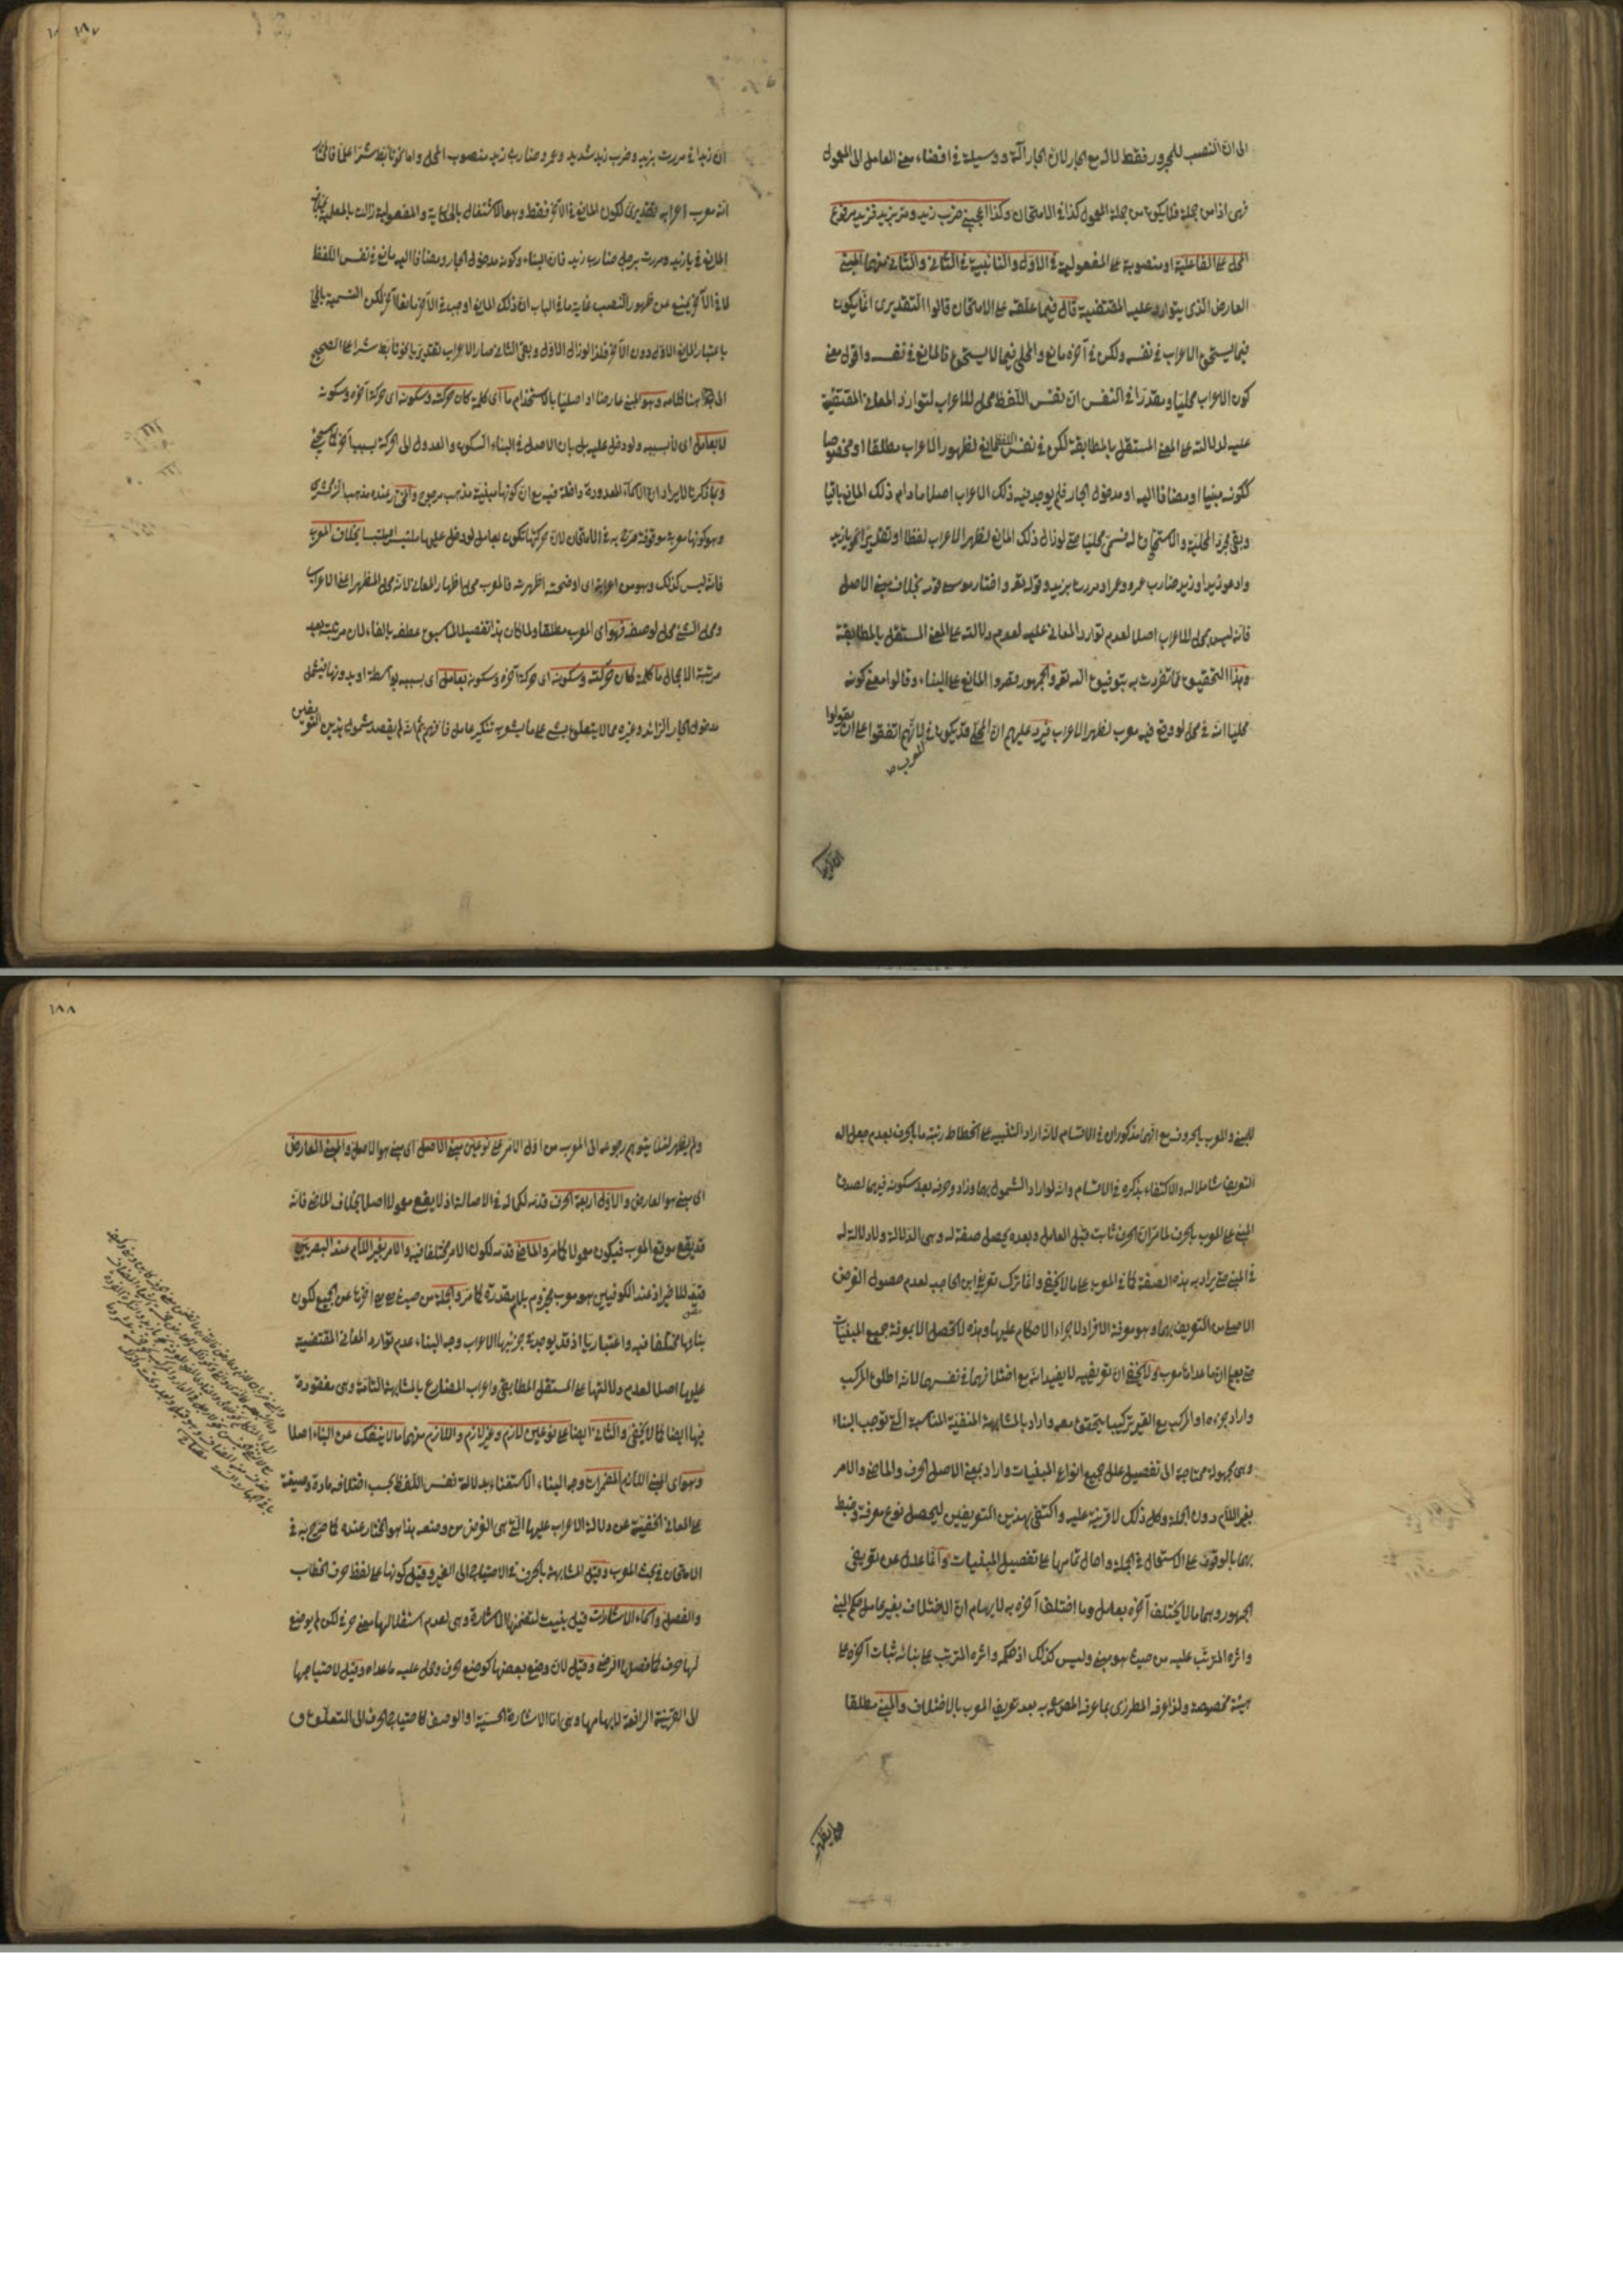 ١٨٧
الى ان النصب للمجرور فقط لا له مع الجار لان الجار آلة ووسيلة فى افضاء معنى العامل الى المعمول
فهى اذا من جملة فلا يكون من جملة المعمول كذا فى الامتحان وكذا اعجبنى ضرب زيد ومر بزيد فزيد مرفوع
المحل على الفاعلية او منصوبه على المفعولية فى الاول والنائبية فى الثانى والثانى منهما المبنى
العارض الذى يتوارد عليه المقتضية قال فيما علقه على الامتحان قالوا التقديرى انما يكون
فيما يستحق الاعراب فى نفسه ولكن فى آخره مانع والمحلى فيما لا يستحق فالمانع فى نفسه واقول معنى
كون الاعراب محليا ومقدرا فى النفس ان نفس اللفظ محل للاعراب لتوارد المعانى المقتضية
عليه لدلالته على المعنى المستقل بالمطابقة لكن فى نفس اللفظ مانع لظهور الاعراب مطلقا او مخصوصا
ككونه مبنيا او مضافا اليه او مدخول الجار فلم يوجد فيه ذلك الاعراب اصلا ما دام ذلك المانع باقيا
وبقى مجرد المحلية والاستحقاق له فسمى محليا حتى لو زال ذلك المانع لظهر الاعراب لفظا او تقديرا نحو يا زيد
وادعو زيدا وزيد ضارب عمرو وعمرا ومررت بزيد وقوله تعالى واختار موسى قومه بخلاف مبنى الاصل
فانه ليس بمحل للاعراب اصلا لعدم توارد المعانى عليه لعدم دلالته على المعنى المستقل بالمطابقة
وهذا التحقيق مما تفردت به بتوفيق الله تعالى والجمهور قصروا المانع على البناء وقالوا معنى كونه
محليا انه فى محل لو وقع فيه معرب لظهر الاعراب فيرد عليهم ان المحلى قد يكون فى المعرب لانهم اتفقوا على ان يقولوا
ان زيدا
ان زيدا فى مررت بزيد وضرب زيد شديد وعمرو ضارب زيد منصوب المحل واما نحو تابط شرا علما فالحق
انه معرب اعرابه تقديرى لكون المانع فى الآخر فقط وهو الاشتغال بالحكاية والمفعولية زالت بالعلمية بخلاف
المانع فى يا زيد ومررت برجل ضارب زيد فان البناء وكونه مدخول الجار ومضافا اليه مانع فى نفس اللفظ
لا فى الآخر يمنع عن ظهور النصب غاية ما فى الباب ان ذلك المانع اوجب فى الآخر مانعا آخر لكن التسمية بالمحلى
باعتبار المانع الاول دون الآخر فلذا لو زال الاول وبقى الثانى صار الاعراب تقديريا نحو تابط شرا على الصحيح
الى هنا كلامه وهو المبنى عارضا او اصليا بالاستخدام ما اى كلمة كان حركته وسكونه اى حركة آخره وسكونه
لا بعامل اى لا بسببه ولو دخل عليه بل بان الاصل فى البناء السكون والعدول الى الحركة بسبب آخر كما سيجئ
وبما ذكرنا لا يراد ان الاسماء المعدودة داخلة فيه مع ان كونها مبنية مذهب مرجوح والحق عنده مذهب الزمخشرى
وهو كونها معربة موقوفة صرح به فى الامتحان لان حركتها تكون بعامل لو دخل عليها بخلاف المعرب
فانه ليس كذلك وهو من اعربه اى اوضحته اظهرته فالمعرب محل اظهار المعانى لانه محل المظهر اعنى الاعراب
ومحل الشئ محل لوصفه فهو اى المعرب مطلقا ولما كان هذا تفصيلا لما سبق عطفه بالفاء لان مرتبته بعد
مرتبة الاجمال ما كلمة كان حركته وسكونه اى حركة آخره وسكونه بعامل اى بسببه بواسطة او بدونها فيشمل
مدخول الجار الزائد وغيره مما لا يتعلق بشئ على ما يشعر به تنكير عامل فافهم ثم انه لم يقصد شمول هذين التعريفين
١٨٨
للمبنى والمعرب بالحروف مع انهما مذكوران فى الاقسام لانه اراد التنبيه على انحطاط رتبة ما بالحرف بعدم جعل اله
التعريف شاملا له والاكتفاء بذكره فى الاقسام وانه لو اراد الشمول بهما وزاد وحرفه بعد سكونه فيهما لصدق
المبنى على المعرب بالحرف لما مر ان الحرف ثابت قبل العامل وبعده يحصل صفة له وهى الدلالة ولا دلالة له
فى المبنى حتى يراد به هذه الصفة كما فى المعرب على ما لا يخفى وانما ترك تعريفى ابن الحاجب لعدم حصول الغرض
الاصلى من التعريف بهما وهو معرفة الافراد لاجراء الاحكام عليها وهذه لا تحصل الا بمعرفة جميع المبنيات
حتى يعلم ان ما عداها معرب ولا يخفى ان تعريفيه لا يفيدانه مع اختلافهما فى نفسهما لانه اطلق المركب
واراد جزءه او المركب مع الغير تركيبا يتحقق معه واراد بالمشابهة المنفية المناسبة التى توجب البناء
وهى مجهولة محتاجة الى تفصيل علل جميع انواع المبنيات واراد بمبنى الاصل الحرف والماضى والامر
بغير اللام دون الجملة وكل ذلك لا قرينة عليه واكتفى بهذين التعريفين ليحصل نوع معرفة وضبط
بهما بالوقوف على الاستعمال فى الجملة واحال تمامها على تفصيل المبنيات وانما عدل عن تعريفى
الجمهور وهما ما لا يختلف آخره بعامل وما اختلف آخره به لايهام ان الاختلاف بغير عامل حكم المبنى
واثره المترتب عليه من حيث هو مبنى وليس كذلك اذ حكمه واثره المترتب على بنائه ثبات آخره على
هيئة مخصوصة ولذا عرفه المطرزى بما عرفه المص به بعد تعريف المعرب بالاختلاف والمبنى مطلقا
ولم يظهر
ولم يظهر لئلا يتوهم رجوعه الى المعرب من اول الامر على نوعين مبنى الاصل اى مبنى هو الاصل والمبنى العارض
اى مبنى هو العارض والاول اربعة الحرف قدمه لكماله فى الاصالة اذ لا يقع معمولا اصلا بخلاف الماضى فانه
قد يقع موقع المعرب فيكون معمولا كما مر والماضى قدمه لكون الامر مختلفا فيه والامر بغير اللام عند البصريين
قيد للاخير اذ عند الكوفيين هو معرب مجزوم بلام مقدرة كما مر والجملة من حيث هى هى اخرها عن الجميع لكون
بنائها مختلفا فيه واعتباريا اذ قد يوجد فى جزئيها الاعراب وجه البناء عدم توارد المعانى المقتضية
عليها اصلا لعدم دلالتها على المستقل المطابقى واعراب المضارع بالمشابهة التامة وهى مفقودة
فيها ايضا كما لا يخفى والثانى ايضا على نوعين لازم وغير لازم واللازم منهما ما لا ينفك عن البناء اصلا
وهو اى المبنى اللازم المضمرات وجه البناء الاستغناء بدلالة نفس اللفظ بحسب اختلافه مادة وصيغة
على المعانى الخفية عن دلالة الاعراب عليها التى هى الغرض من وضعه هذا هو المختار عنده كما صرح به فى
الامتحان فى بحث المعرب وقيل المشابهة بالحرف فى الاحتياج الى الغير وقيل كونها على لفظ حرف الخطاب
والفصل واسماء الاشارات قيل بنيت لتضمنها الاشارة وهى لعدم استقلالها معنى حرفى لكن لم يوضع
لها حرف كما فصله الرضى وقيل لان وضع بعضها كوضع الحرف وحمل عليه ما عداه وقيل لاحتياجها
الى القرينة الرافعة لابهامها وهى اما الاشارة الحسية او الوصف كاحتياج الحرف الى المتعلق و